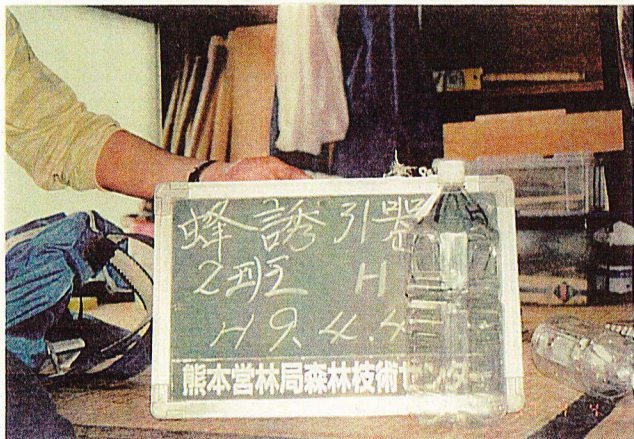 蜂誘引器
2班 H
H9.4.4
熊本営林局森林技術センター